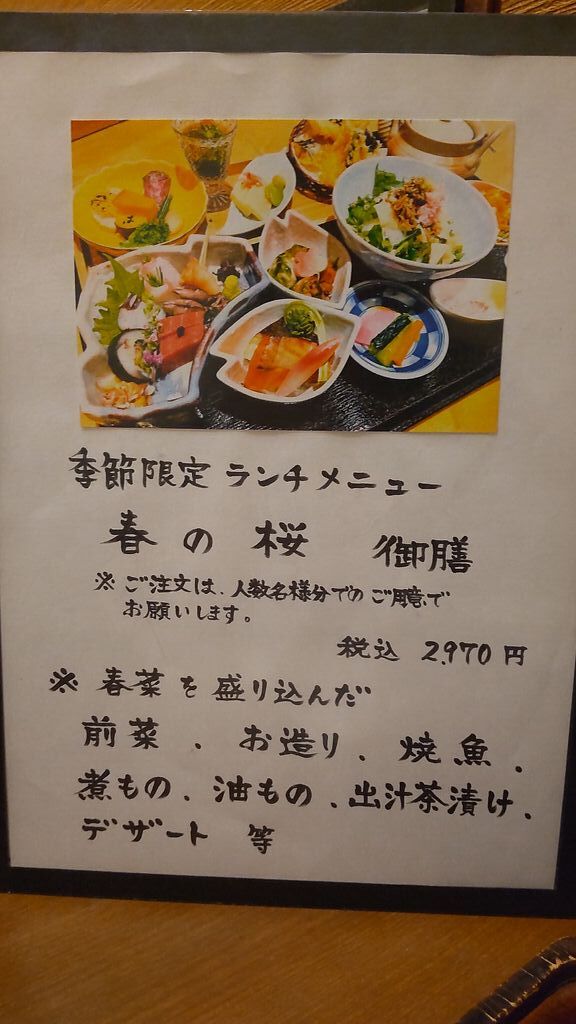 季節限定 ランチメニュー
春の桜 御膳
※ ご注文は、人数名様分でのご用意で
お願いします。
税込 2,970円
※ 春菜を盛り込んだ
前菜、お造り、焼魚、
煮もの、油もの、出汁茶漬け、
デザート 等